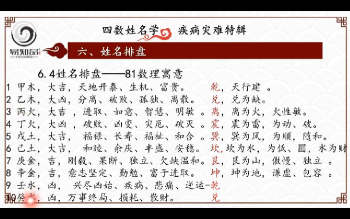 四数姓名学 疾病灾难特辑
六、姓名排盘
6.4姓名排盘——81数理寓意
1 甲木，大吉，天地开泰、生机、富贵。 乾，天行建。
2 乙木，大凶，分离、破败、孤独、离散。 兑，兑为缺。
3 丙火，大吉，进取、如意、智慧、明敏。离，离为火，火性敏。
4 丁火，凶，破败、凶变、灾厄、破灭。 震，震为雷，为动、破。
5 戊土，大吉，福禄、长寿、福祉、和合。巽，巽为风，为顺，随和。
6 己土，大吉，和睦、余庆、丰盛、安稳。坎，坎为水，为低、圆，水为财
7 庚金，吉，刚毅、果断、独立、欠缺温和。艮，艮为山，傲慢、独立。
8 辛金，吉，意志坚定、勤勉，富于进取。坤，坤为地，谦虚，包容；
9 壬水，凶，兴尽凶始、疾病、悲痛、逆运-乾
10 癸 凶，万事终局、损耗、败财。 兑